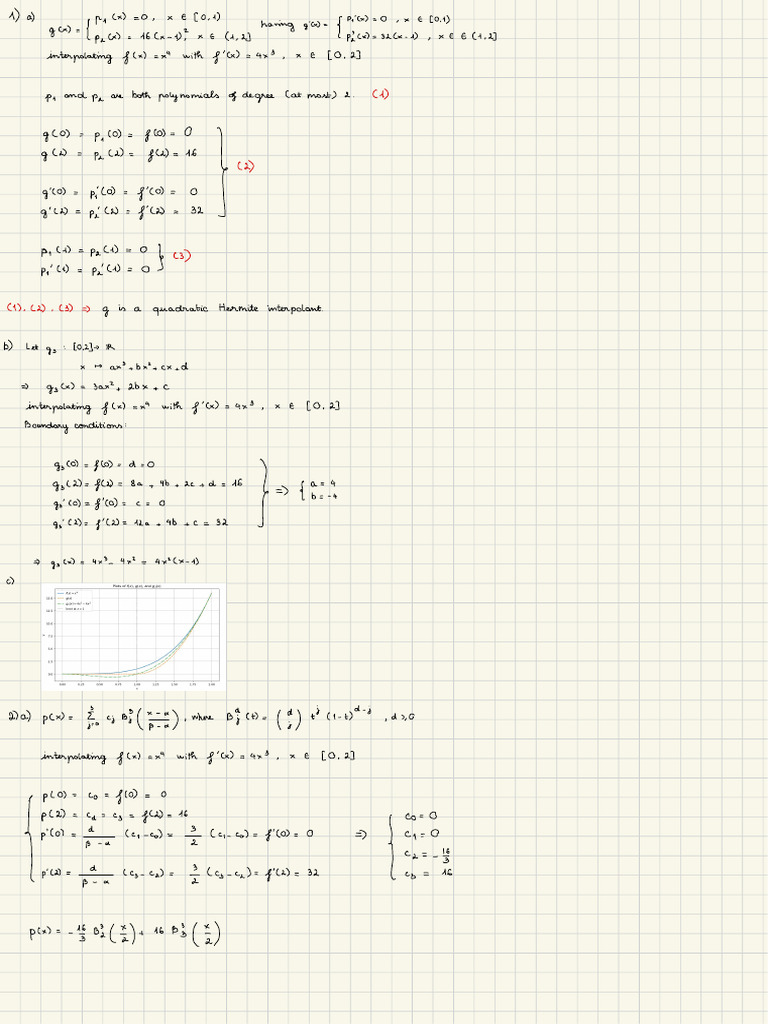 1) a) g(x) = { p₁(x) = 0, x ∈ [0,1) having g'(x) = { p₁'(x) = 0, x ∈ [0,1)
p₂(x) = 16(x-1)², x ∈ (1,2] p₂'(x) = 32(x-1), x ∈ (1,2]
interpolating f(x) = x⁴ with f'(x) = 4x³, x ∈ [0,2]
p₁ and p₂ are both polynomials of degree (at most) 2. (1)
g(0) = p₁(0) = f(0) = 0
g(2) = p₂(2) = f(2) = 16
(2)
g'(0) = p₁'(0) = f'(0) = 0
g'(2) = p₂'(2) = f'(2) = 32
p₁(1) = p₂(1) = 0
p₁'(1) = p₂'(1) = 0 } (3)
(1), (2), (3) ⇒ g is a quadratic Hermite interpolant.
b) Let g₃ : [0,2] → ℝ
x ↦ ax³ + bx² + cx + d
⇒ g₃(x) = 3ax² + 2bx + c
interpolating f(x) = x⁴ with f'(x) = 4x³, x ∈ [0,2]
Boundary conditions:
g₃(0) = f(0) = d = 0
g₃(2) = f(2) = 8a + 4b + 2c + d = 16 ⇒ { a = 4
g₃'(0) = f'(0) = c = 0 b = -4
g₃'(2) = f'(2) = 12a + 4b + c = 32
⇒ g₃(x) = 4x³ - 4x² = 4x²(x-1)
c)
2) a) p(x) = Σ_{j=0}^{3} cⱼ Bⱼ³((x-α)/(β-α)), where Bⱼᵈ(t) = (d j) tʲ (1-t)ᵈ⁻ʲ, d ≥ 0
interpolating f(x) = x⁴ with f'(x) = 4x³, x ∈ [0,2]
p(0) = c₀ = f(0) = 0
p(2) = c_d = c₃ = f(2) = 16 c₀ = 0
p'(0) = d/(β-α) (c₁-c₀) = 3/2 (c₁-c₀) = f'(0) = 0 ⇒ c₁ = 0
c₂ = -16/3
p'(2) = d/(β-α) (c₃-c₂) = 3/2 (c₃-c₂) = f'(2) = 32 c₃ = 16
p(x) = -16/3 B₂³(x/2) + 16 B₃³(x/2)